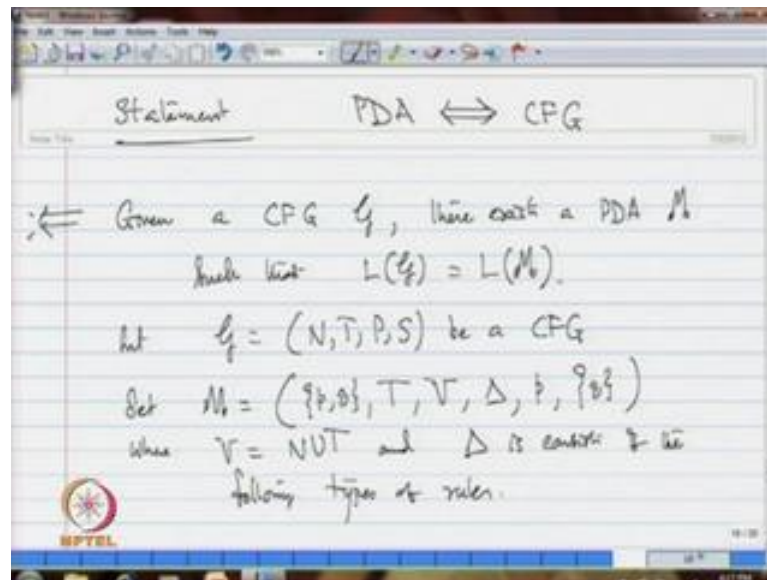 Statement PDA ⟺ CFG
:⇐ Given a CFG G, there exists a PDA M
such that L(G) = L(M).
Let G = (N, T, P, S) be a CFG
Set M = ({p, q}, T, V, Δ, p, {q})
where V = N∪T and Δ is consist of the
following types of rules.
NPTEL